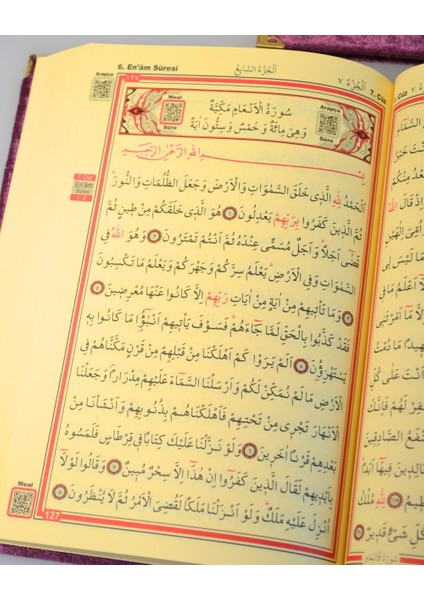 6. En'âm Sûresi
اَلْجُزْءُ السَّابِعُ
اَلْجُزْءُ ٧
7. Cüz
Arapça
١٢٧
Meal
Sûre
سُورَةُ الْاَنْعَامِ مَكِّيَّةٌ
وَهِىَ مِائَةٌ وَ خَمْسٌ وَ سِتُّونَ اٰيَةً
Arapça
بِسْمِ اللّٰهِ الرَّحْمٰنِ الرَّحِيمِ
7. Cüz
En'âm
Sûresi
1-8
اَلْحَمْدُ لِلّٰهِ الَّذِى خَلَقَ السَّمٰوَاتِ وَالْاَرْضَ وَجَعَلَ الظُّلُمَاتِ وَالنُّورَ
ثُمَّ الَّذِينَ كَفَرُوا بِرَبِّهِمْ يَعْدِلُونَ ١ هُوَ الَّذِى خَلَقَكُمْ مِنْ طِينٍ ثُمَّ
قَضٰٓى اَجَلًا وَاَجَلٌ مُسَمًّى عِنْدَهُ ثُمَّ اَنْتُمْ تَمْتَرُونَ ٢ وَهُوَ اللّٰهُ فِى
السَّمٰوَاتِ وَفِى الْاَرْضِ يَعْلَمُ سِرَّكُمْ وَجَهْرَكُمْ وَيَعْلَمُ مَا تَكْسِبُونَ
٣ وَمَا تَاْتِيهِمْ مِنْ اٰيَةٍ مِنْ اٰيَاتِ رَبِّهِمْ اِلَّا كَانُوا عَنْهَا مُعْرِضِينَ ٤
فَقَدْ كَذَّبُوا بِالْحَقِّ لَمَّا جَٓاءَهُمْ فَسَوْفَ يَاْتِيهِمْ اَنْبٰٓؤُا مَا كَانُوا بِهِ
يَسْتَهْزِؤُنَ ٥ اَلَمْ يَرَوْا كَمْ اَهْلَكْنَا مِنْ قَبْلِهِمْ مِنْ قَرْنٍ مَكَّنَّاهُمْ فِى
الْاَرْضِ مَا لَمْ نُمَكِّنْ لَكُمْ وَاَرْسَلْنَا السَّمَٓاءَ عَلَيْهِمْ مِدْرَارًا وَجَعَلْنَا
الْاَنْهَارَ تَجْرِى مِنْ تَحْتِهِمْ فَاَهْلَكْنَاهُمْ بِذُنُوبِهِمْ وَاَنْشَاْنَا مِنْ
بَعْدِهِمْ قَرْنًا اٰخَرِينَ ٦ وَلَوْ نَزَّلْنَا عَلَيْكَ كِتَابًا فِى قِرْطَاسٍ فَلَمَسُوهُ
بِاَيْدِيهِمْ لَقَالَ الَّذِينَ كَفَرُٓوا اِنْ هٰذَٓا اِلَّا سِحْرٌ مُبِينٌ ٧ وَقَالُوا لَوْلَٓا
اُنْزِلَ عَلَيْهِ مَلَكٌ وَلَوْ اَنْزَلْنَا مَلَكًا لَقُضِىَ الْاَمْرُ ثُمَّ لَا يُنْظَرُونَ ٨
Meal
127